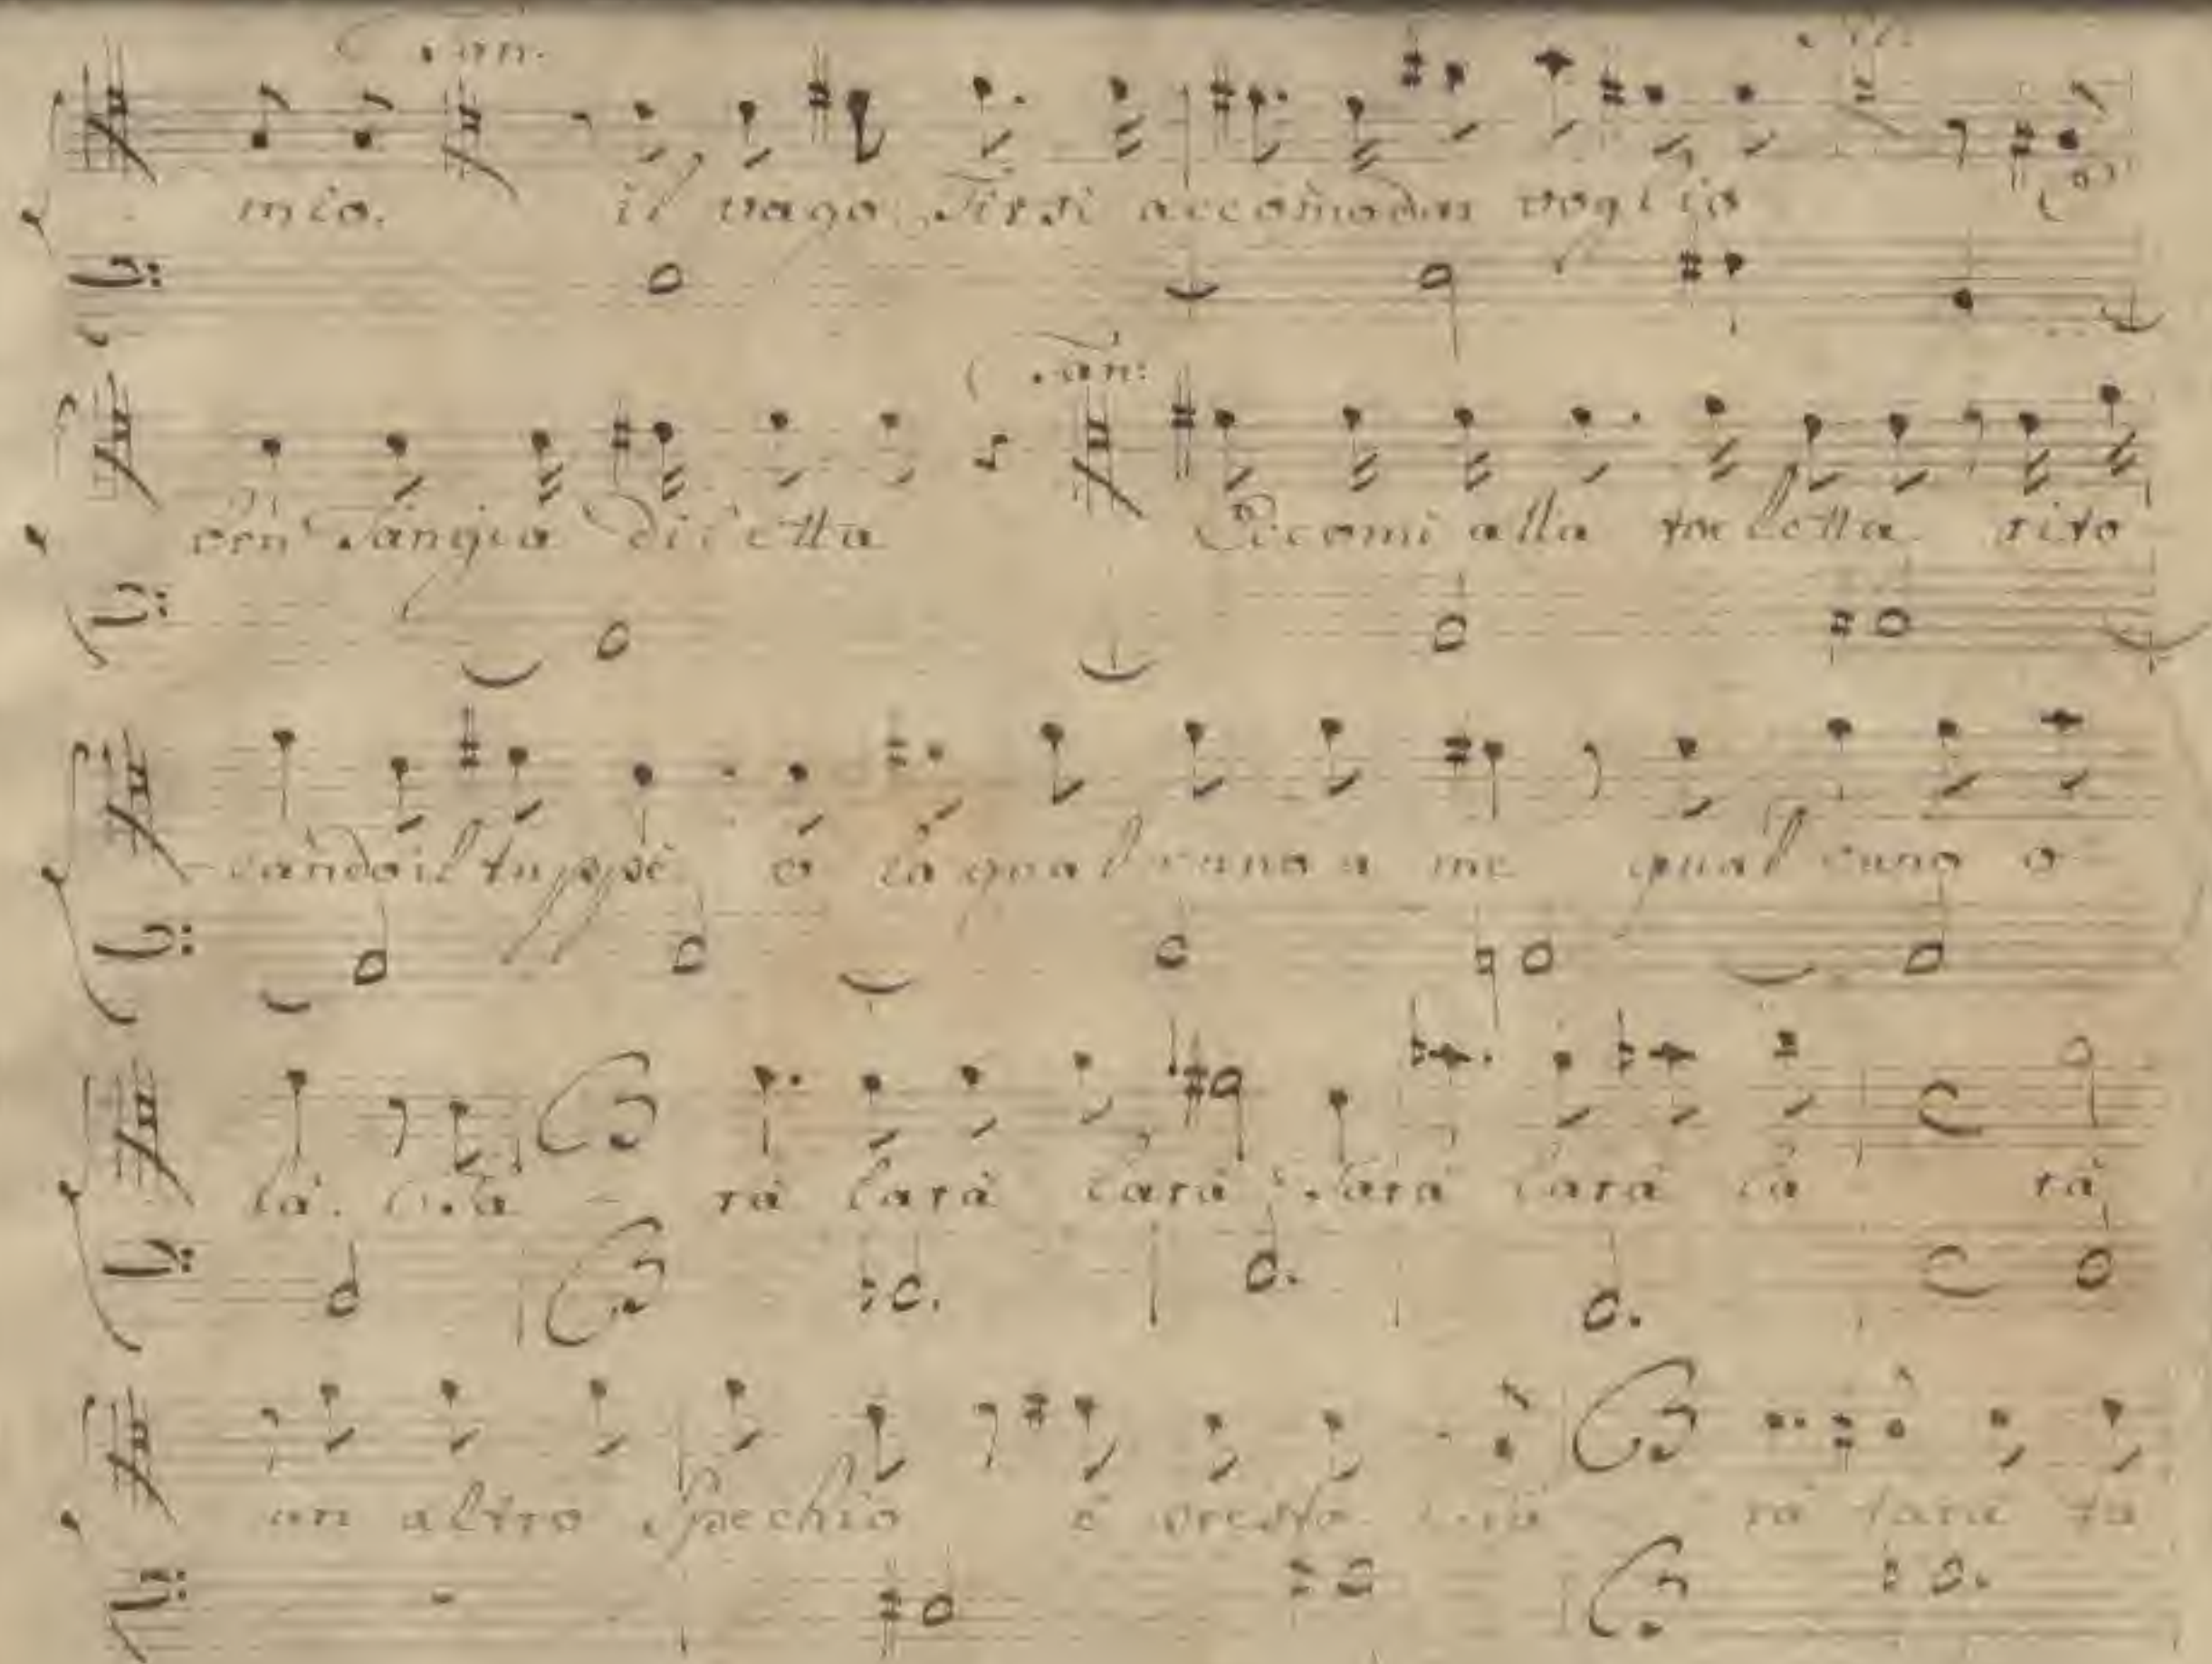 Tan.
mio. il vago Tirsi accom̃odar voglio
Tan:
Tangia diletta Eccomi alla toeletta rito
cando il tuppè o là qualcuno a me qualcuno o
là. Larà rà larà larà larà larà là rà
un altro specchio e presto rà larà la